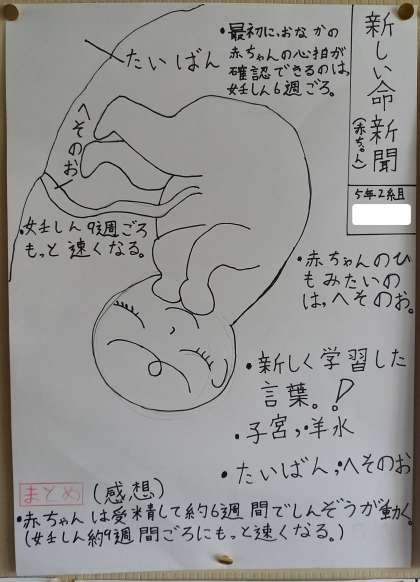 新しい命新聞
(赤ちゃん)
5年2組
・最初に、おなかの
赤ちゃんの心拍が
確認できるのは、
妊しん6週ごろ。
たいばん
へそのお
・妊しん9週ごろ
もっと速くなる。
・赤ちゃんのひ
もみたいの
は、へそのお。
・新しく学習した
言葉。!
・子宮,・羊水
・たいばん,・へそのお
まとめ(感想)
・赤ちゃんは受精して約6週間でしんぞうが動く。
(妊しん約9週間ごろにもっと速くなる。)